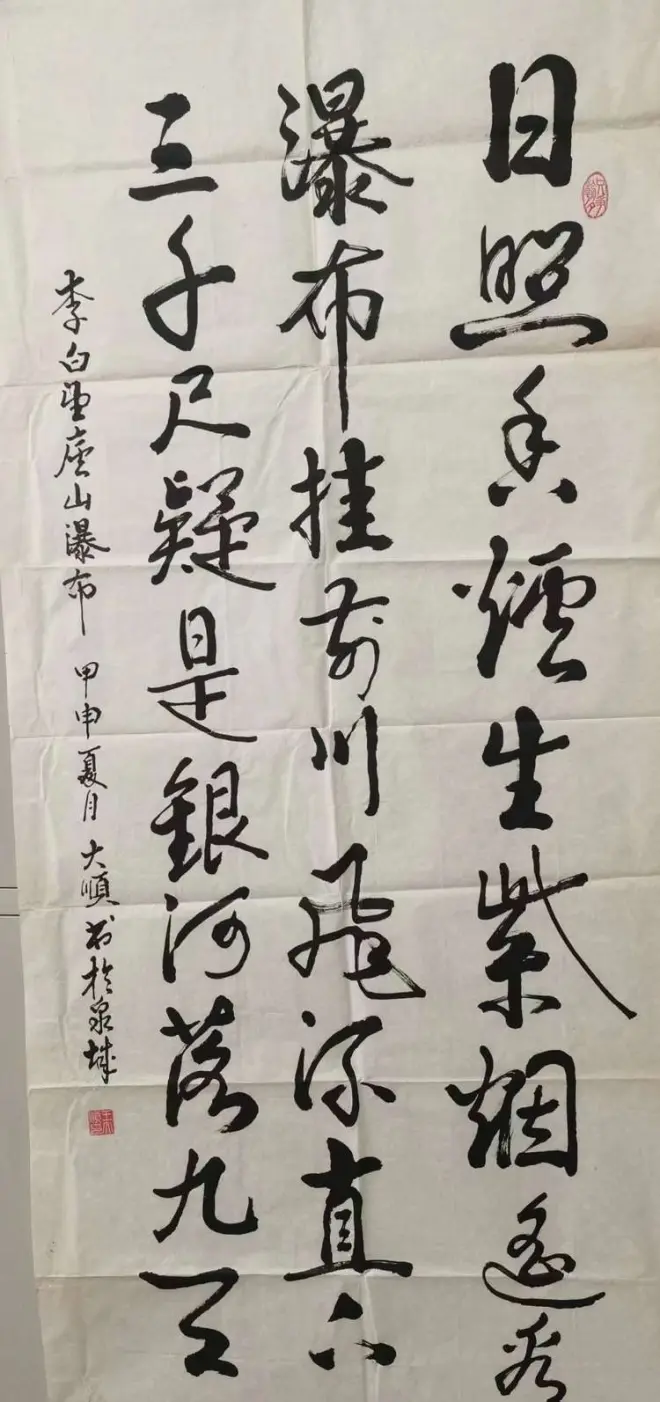 日照香爐生紫烟遥看
瀑布挂前川飛流直下
三千尺疑是銀河落九天
李白望廬山瀑布 甲申夏月 大順书於泉城